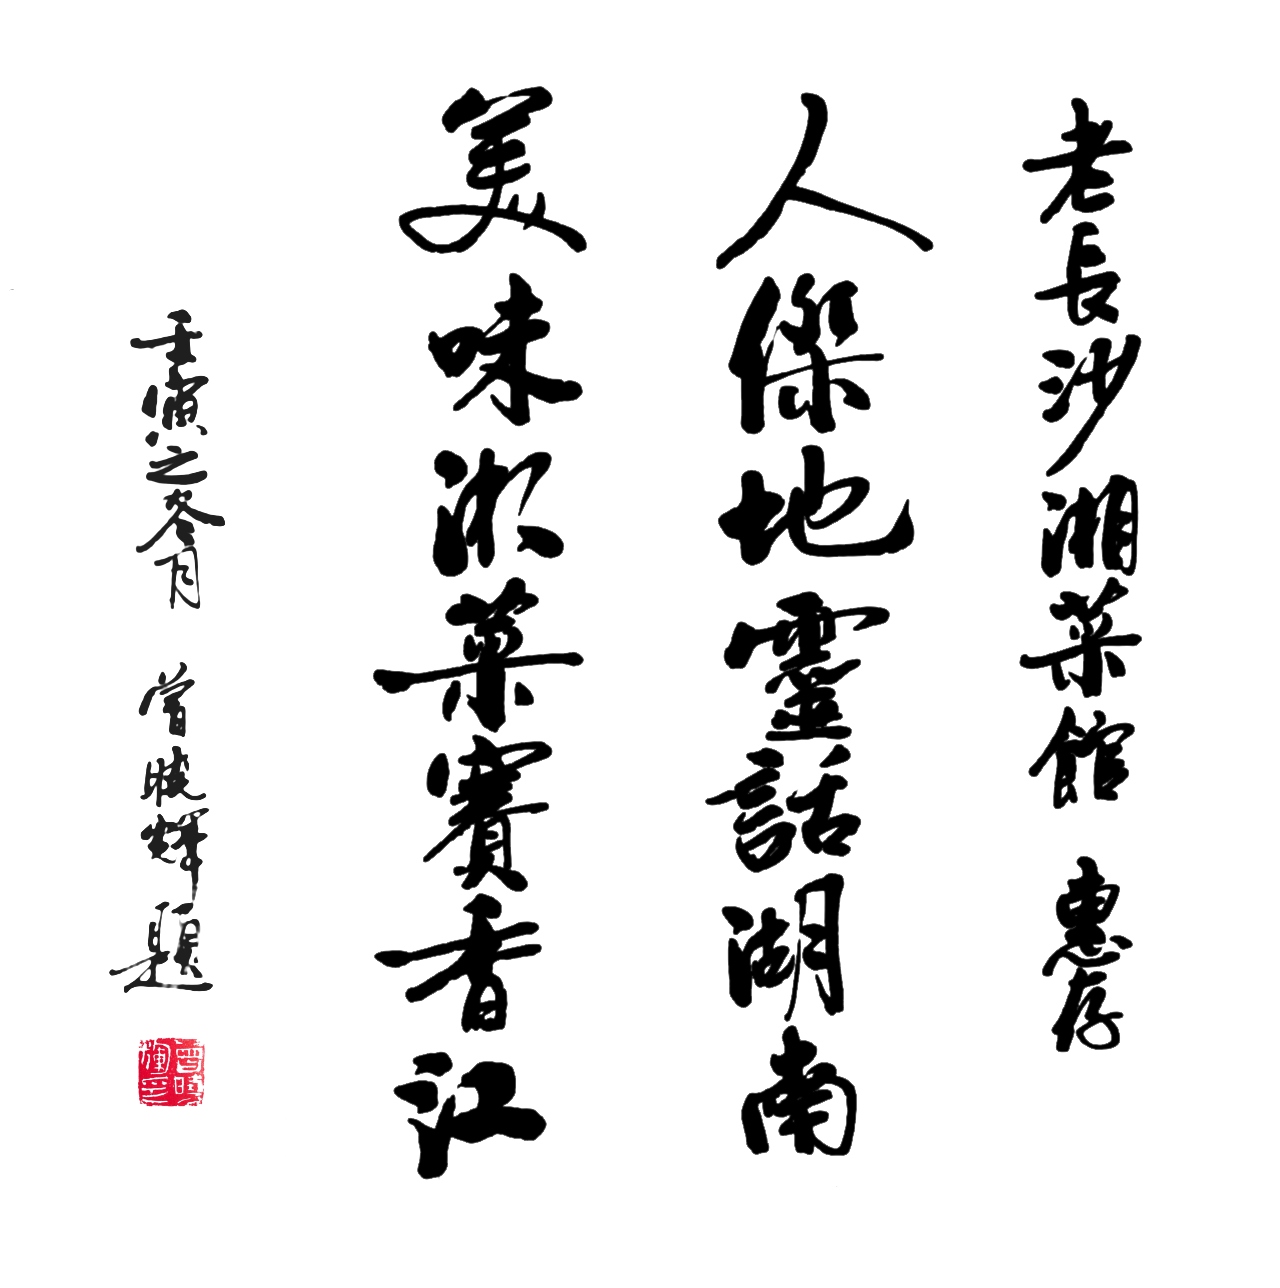 老長沙湘菜館 惠存
人傑地靈話湖南
美味湘菜賽香江
壬寅之冬月 曾曉輝題